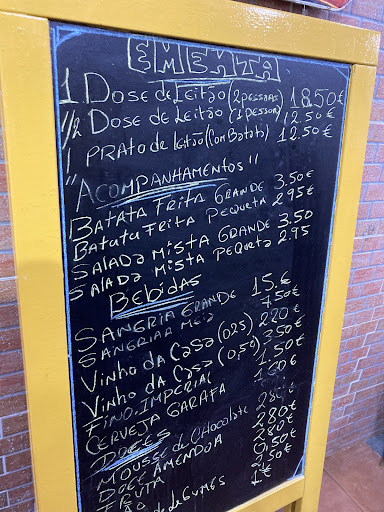 EMENTA
1 DOSE de Leitão (2 pessoas 18.50€
1/2 DOSE de Leitão (1 pessoa) 12.50€
1 PRATO de leitão (Com Batata) 12.50€
"ACOMPANHAMENTOS"
BATATA FRITA GRANDE 3.50€
BATATA FRITA PEQUETA 2.95€
SALADA MISTA GRANDE 3.50
SALADA MISTA PEQUETA 2.95
BEBIDAS
SANGRIA GRANDE 15.€
SANGRIAR MEIA 7.50€
Vinho da CASA (0,25) 2.20€
Vinho da CASA (0,5) 3.50€
FINO.IMPERIAL 1.50€
CERVEJA GARAFA 1.60€
DOCES
MOUSSE de CHOCOLATE 2.80€
DOCE AMENDOA 2.80€
FRUTA 2.80€